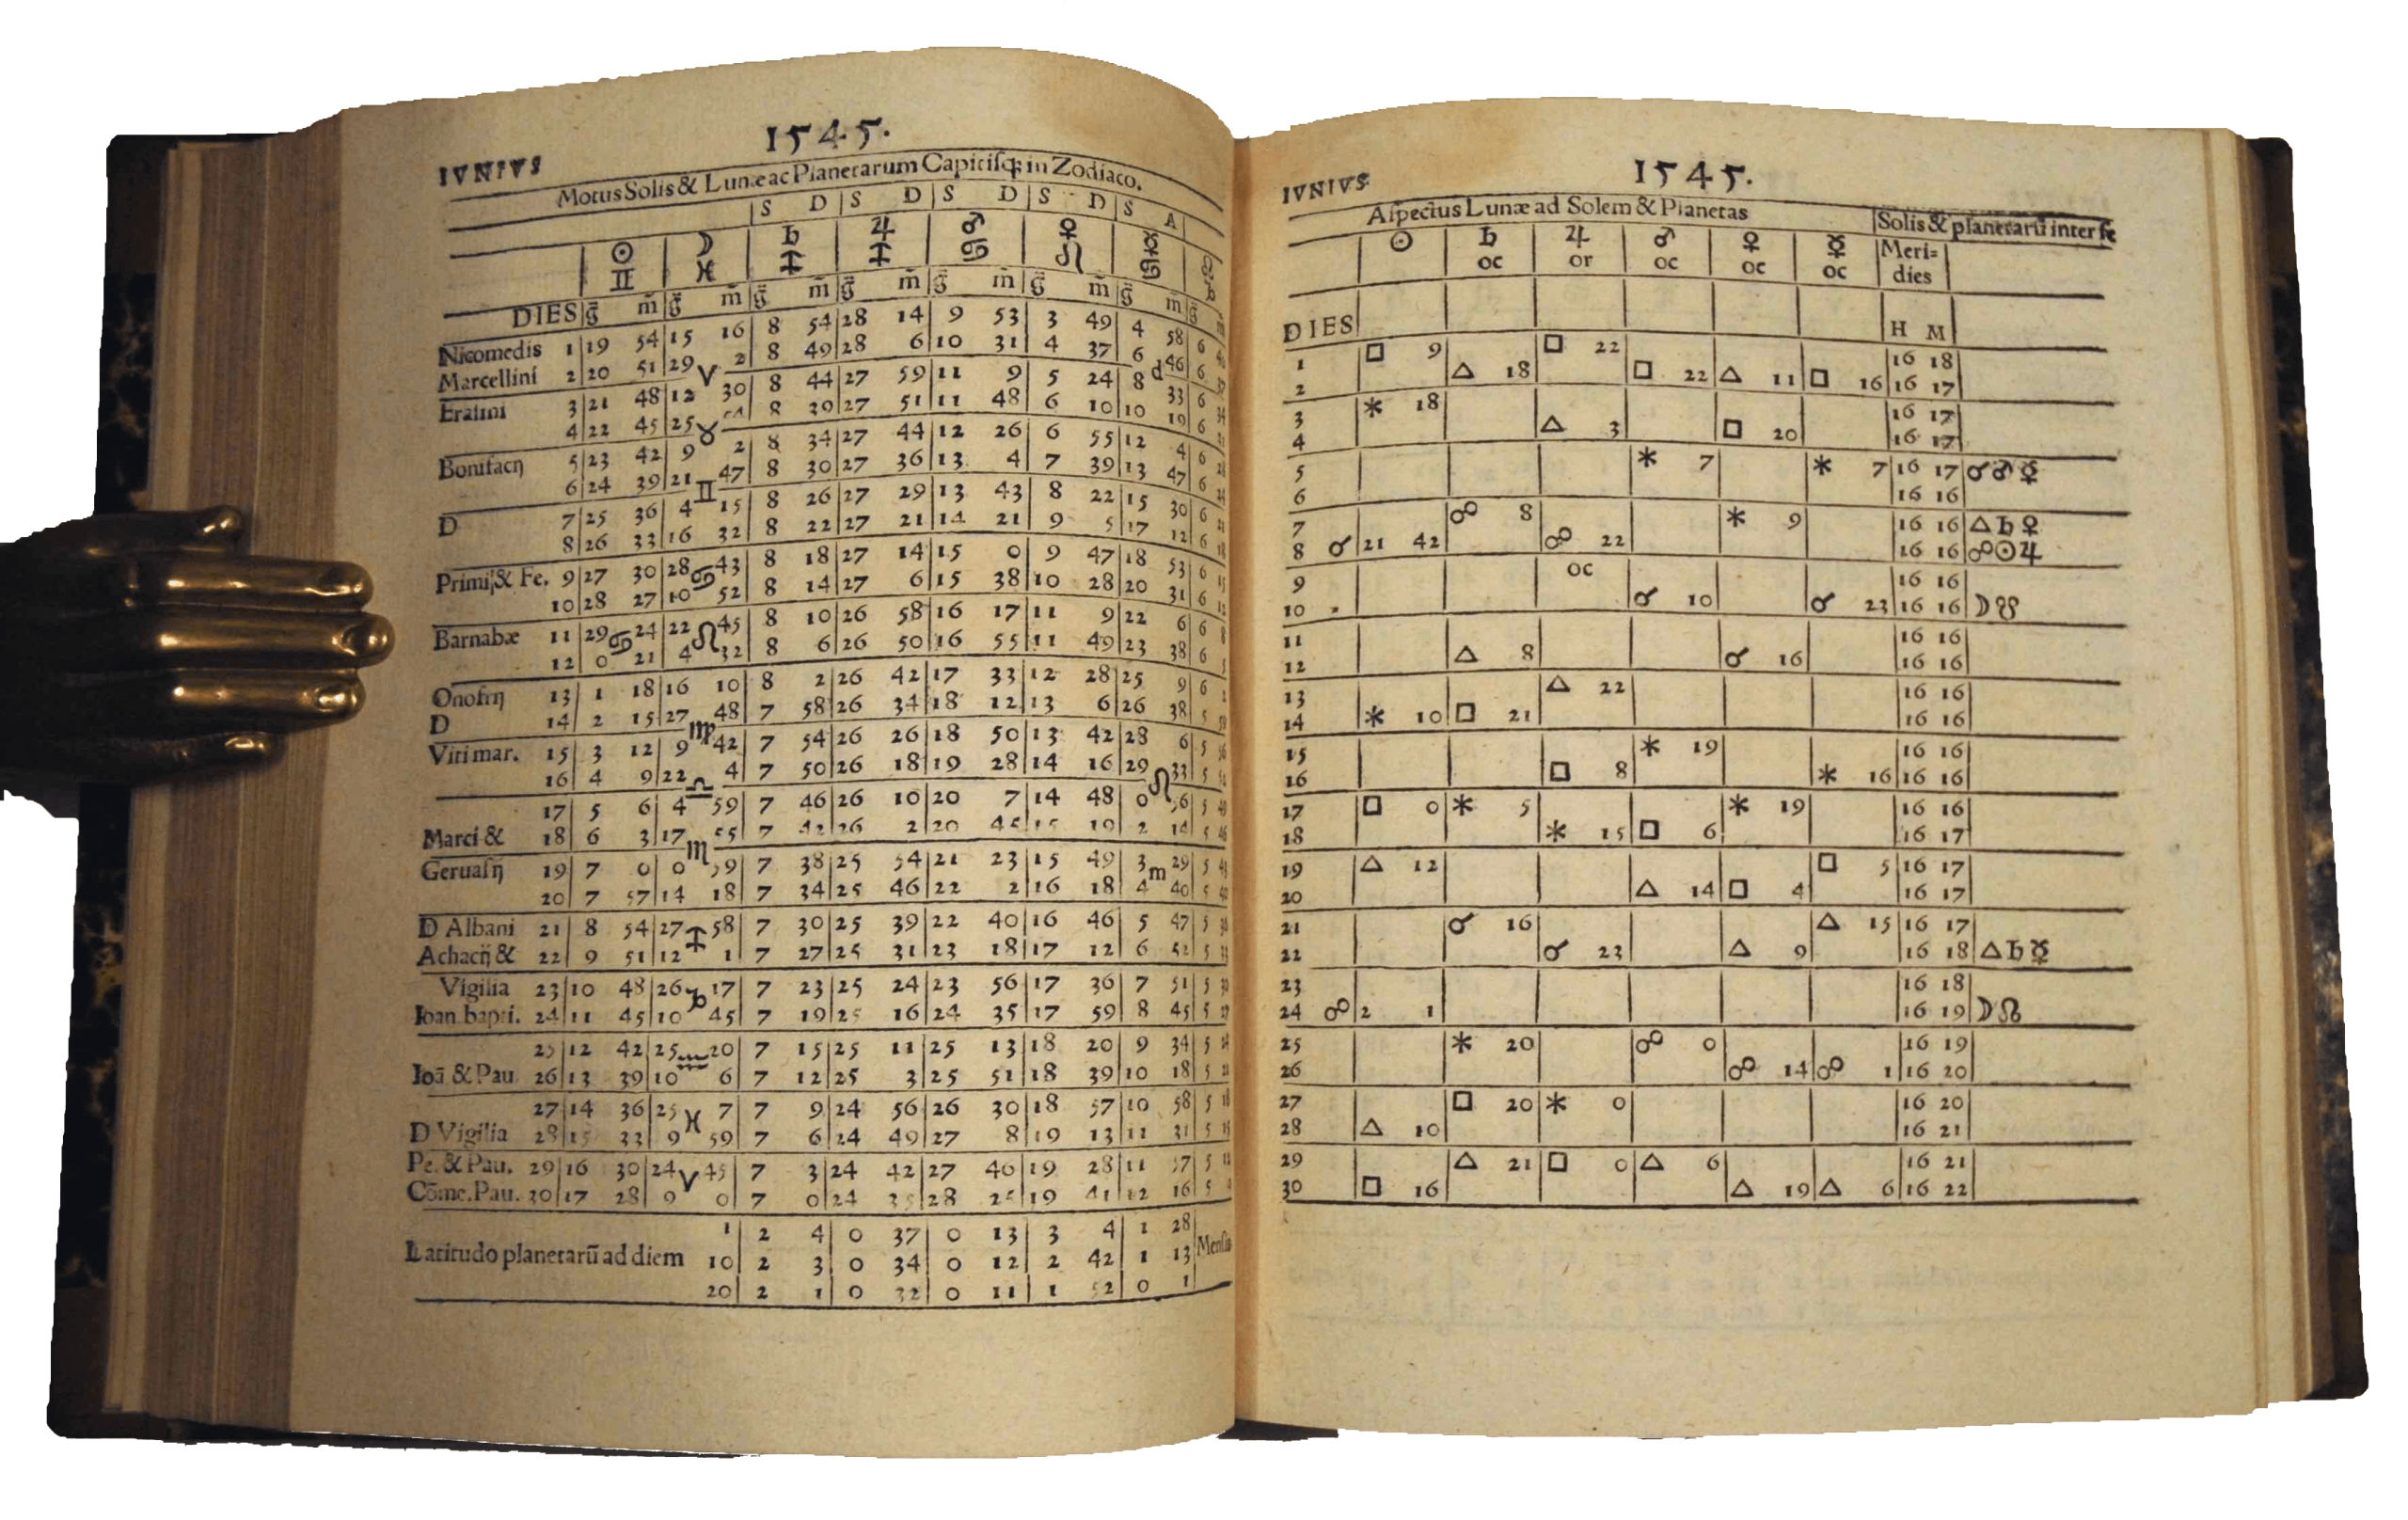 1545.
IVNIVS
Motus Solis & Lunæ ac Planetarum Capitisq; in Zodiaco.
S D | S D | S D | S D | S A
☉ ☽ ♄ ♃ ♂ ♀ ☿
♊ ♓ ♐ ♐ ♋ ♌ ♋
DIES g̃ m̃ g̃ m̃ g̃ m̃ g̃ m̃ g̃ m̃ g̃ m̃ g̃ m̃ g̃
Nicomedis 1 19 54 15 16 8 54 28 14 9 53 3 49 4 58 6
Marcellini 2 20 51 29 ♈ 2 8 49 28 6 10 31 4 37 6 d 46 6
Erasmi 3 21 48 12 30 8 44 27 59 11 9 5 24 8 33 6
4 22 45 25 ♉ 8 39 27 51 11 48 6 10 10 19 6
Bonifacij 5 23 42 9 2 8 34 27 44 12 26 6 55 12 4 6
6 24 39 21 ♊ 47 8 30 27 36 13 4 7 39 13 47 6
D 7 25 36 4 15 8 26 27 29 13 43 8 22 15 30 6
8 26 33 16 32 8 22 27 21 14 21 9 5 17 12 6
Primi & Fe. 9 27 30 28 ♋ 43 8 18 27 14 15 0 9 47 18 53 6
10 28 27 10 52 8 14 27 6 15 38 10 28 20 31 6
Barnabæ 11 29 ♋ 24 22 ♌ 45 8 10 26 58 16 17 11 9 22 6 6
12 0 21 4 32 8 6 26 50 16 55 11 49 23 38 6
Onofrij 13 1 18 16 10 8 2 26 42 17 33 12 28 25 9 6
D 14 2 15 27 ♍ 48 7 58 26 34 18 12 13 6 26 38 5
Viti mar. 15 3 12 9 42 7 54 26 26 18 50 13 42 28 6 5
16 4 9 22 ♎ 4 7 50 26 18 19 28 14 16 29 ♌ 33 5
17 5 6 4 59 7 46 26 10 20 7 14 48 0 56 5
Marci & 18 6 3 17 ♏ 55 7 42 26 2 20 45 15 19 2 14 5
Geruasij 19 7 0 0 59 7 38 25 54 21 23 15 49 3 m 29 5
20 7 57 14 18 7 34 25 46 22 2 16 18 4 40 5
D Albani 21 8 54 27 ♐ 58 7 30 25 39 22 40 16 46 5 47 5
Achacij & 22 9 51 12 1 7 27 25 31 23 18 17 12 6 52 5
Vigilia 23 10 48 26 ♑ 17 7 23 25 24 23 56 17 36 7 51 5
Ioan bapti. 24 11 45 10 45 7 19 25 16 24 35 17 59 8 45 5
25 12 42 25 ♒ 20 7 15 25 11 25 13 18 20 9 34 5
Ioā & Pau 26 13 39 10 6 7 12 25 3 25 51 18 39 10 18 5
27 14 36 25 ♓ 7 7 9 24 56 26 30 18 57 10 58 5
D Vigilia 28 15 33 9 59 7 6 24 49 27 8 19 13 11 31 5
Pe. & Pau. 29 16 30 24 ♈ 45 7 3 24 42 27 46 19 28 11 57 5
Cōme. Pau. 30 17 28 9 0 7 0 24 35 28 25 19 41 12 16 5
1 2 4 0 37 0 13 3 4 1 28
Latitudo planetarū ad diem 10 2 3 0 34 0 12 2 42 1 13 Mensis
20 2 1 0 32 0 11 1 52 0 1
1545.
IVNIVS
Aspectus Lunæ ad Solem & Planetas Solis & planetarū inter se
☉ ♄ ♃ ♂ ♀ ☿ Meri=
oc or oc oc oc dies
DIES H M
1 □ 9 □ 22 16 18
2 △ 18 □ 22 △ 11 □ 16 16 17
3 ⚹ 18 16 17
4 △ 3 □ 20 16 17
5 ⚹ 7 ⚹ 7 16 17 ☌ ♂ ☿
6 16 16
7 ☍ 8 ⚹ 9 16 16 △ ♄ ♀
8 ☌ 21 42 ☍ 22 16 16 ☍ ☉ ♃
9 oc 16 16
10 ☌ 10 ☌ 23 16 16 ☽ ☋
11 16 16
12 △ 8 ☌ 16 16 16
13 △ 22 16 16
14 ⚹ 10 □ 21 16 16
15 ⚹ 19 16 16
16 □ 8 ⚹ 16 16 16
17 □ 0 ⚹ 5 ⚹ 19 16 16
18 ⚹ 15 □ 6 16 17
19 △ 12 □ 5 16 17
20 △ 14 □ 4 16 17
21 ☌ 16 △ 15 16 17
22 ☌ 23 △ 9 16 18 △ ♄ ☿
23 16 18
24 ☍ 2 1 16 19 ☽ ☊
25 ⚹ 20 ☍ 0 16 19
26 ☍ 14 ☍ 1 16 20
27 □ 20 ⚹ 0 16 20
28 △ 10 16 21
29 △ 21 □ 0 △ 6 16 21
30 □ 16 △ 19 △ 6 16 22